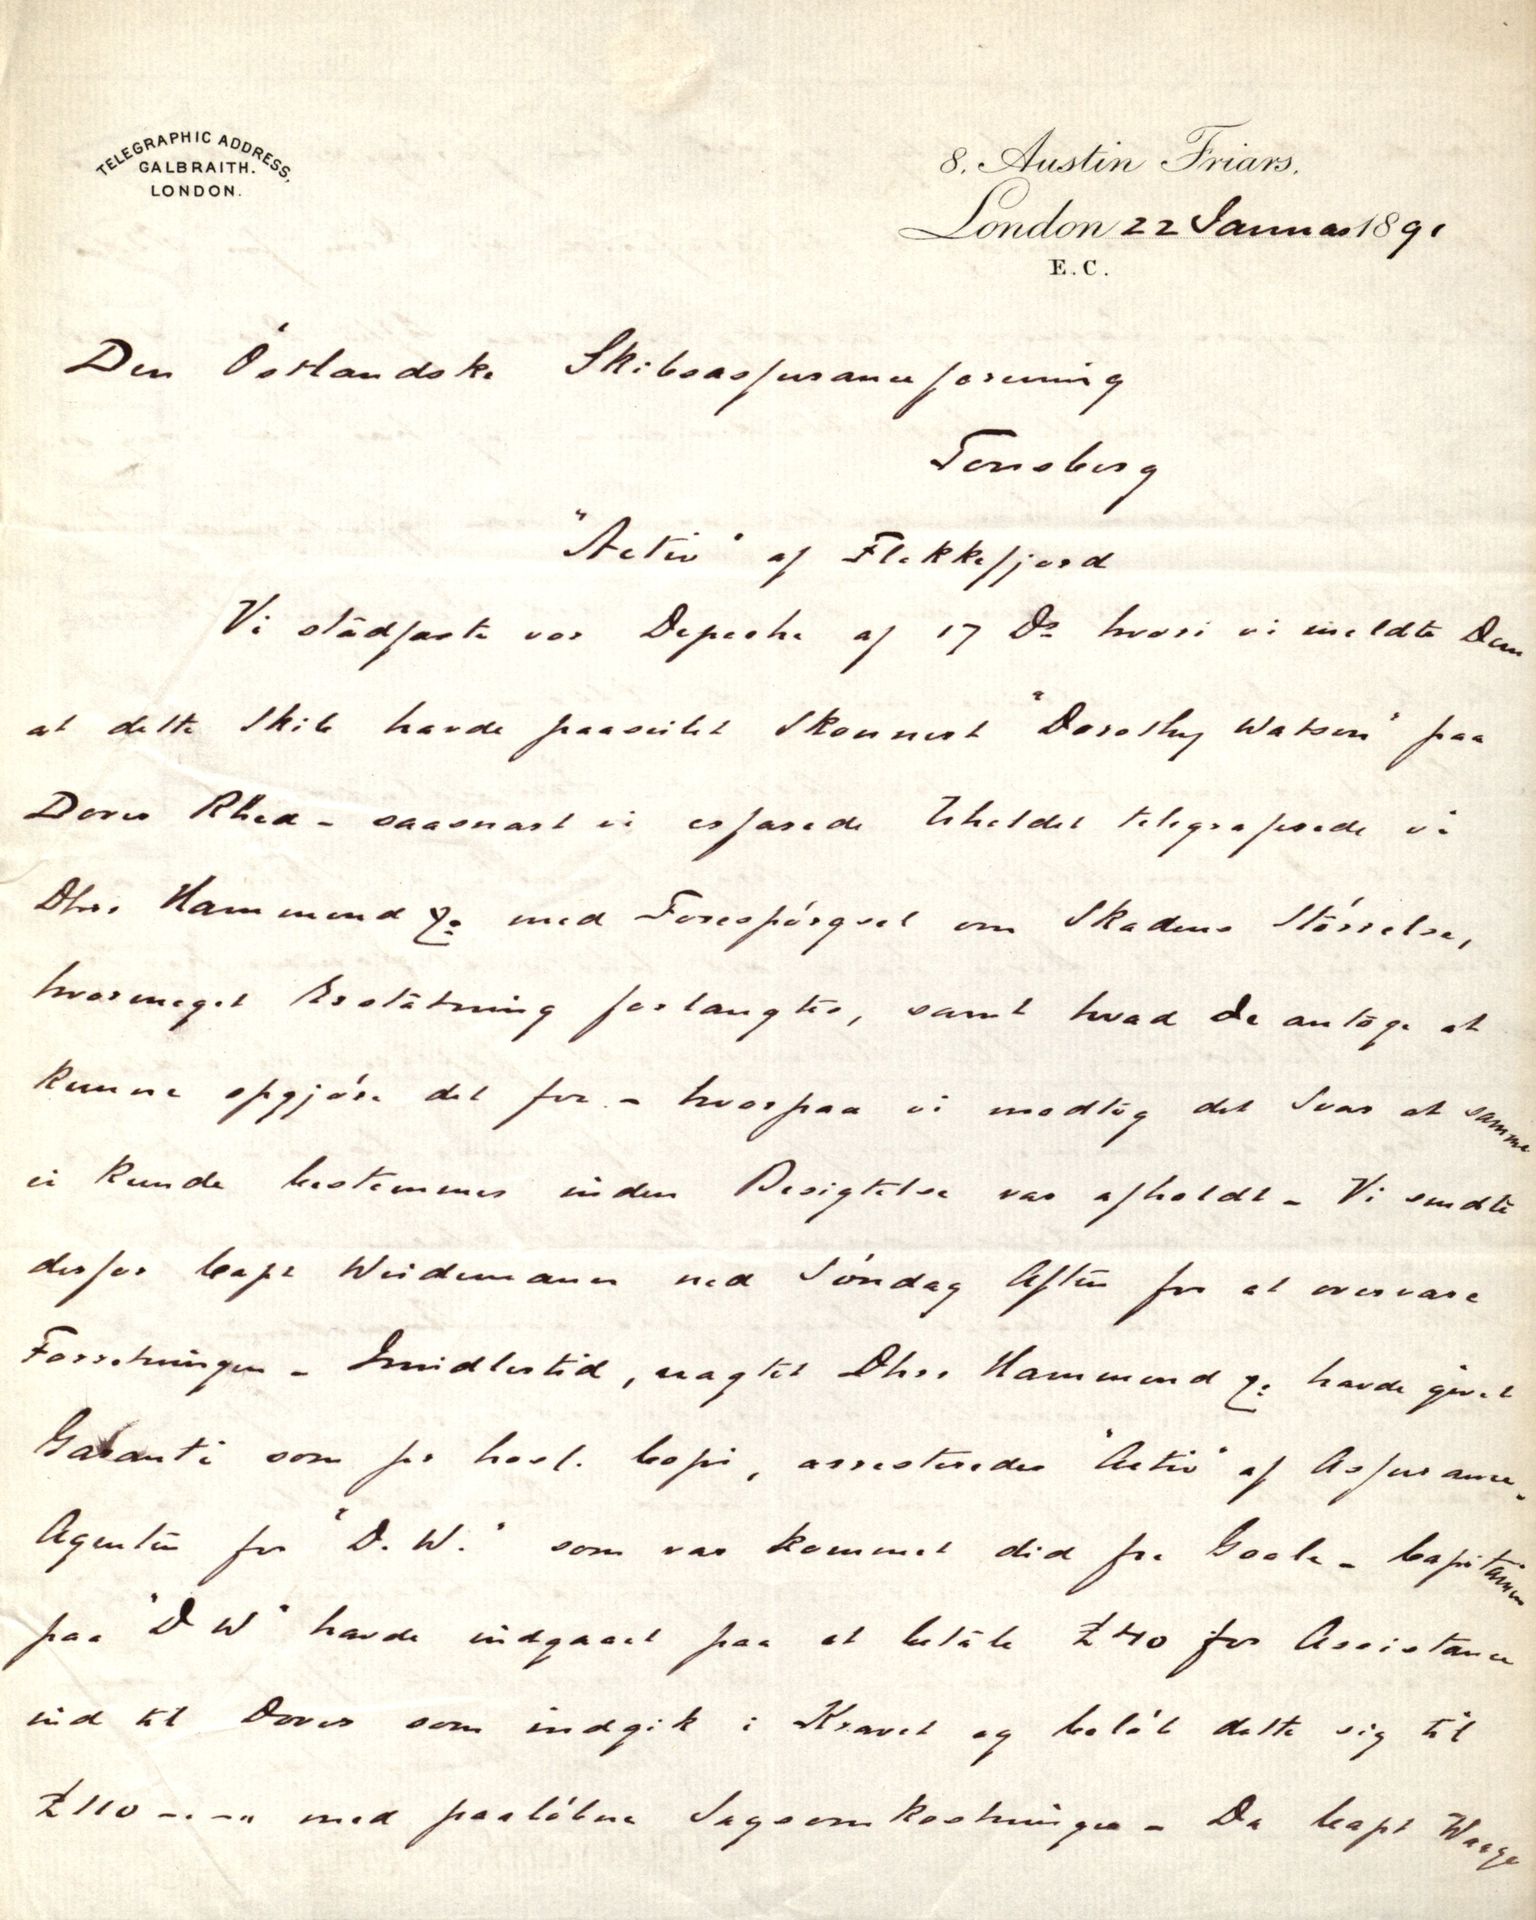 TELEGRAPHIC ADDRESS,
GALBRAITH.
LONDON.
8, Austin Friars.
London 22 Januar 1891
E.C.
Den Östlandske Skibsassuranceforening
Tonsberg
"Activ" af Flekkefjord
Vi stadfæste vor Depeche af 17 Ds hvori vi meldte Dem
at dette Skib havde paaseilet Skonnert "Dorothy Watson" paa
Dover Rhed - saasnart vi erfarede Uheldet telegraferede vi
Dhrr Hammond & Co med Forespórgsel om Skadens Störrelse,
hvormeget Erstatning forlangtes, samt hvad de antoge at
kunne opgjóre det for - hvorpaa vi modtog det Svar at samme
ei kunde bestemmes inden Besigtelse var afholdt - Vi sendte
derfor Capt Weidemann ned Söndag Aften for at overvære
Forretningen - Imidlertid, uagtet Dhrr Hammond & Co havde givet
Garanti som pr hosl. Copi, arresteredes "Activ" af Assurance-
Agenten for "D. W." som var kommet did fra Goole - Capitainen
paa "D W" havde indgaaet paa at betale £40 for Assistance
ind til Dover som indgik i Kravet og belób dette sig til
£110 -.-.. med paalóbne Sagsomkostninger - Da Capt Waage